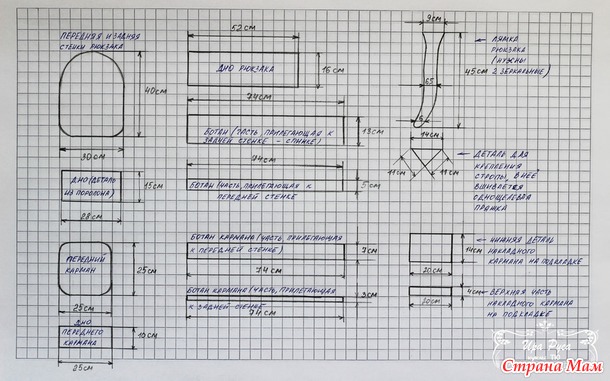 ПЕРЕДНЯЯ И ЗАДНЯЯ
СТЕНКИ РЮКЗАКА
40см
30см
ДНО (ДЕТАЛЬ
ИЗ ПОРОЛОНА)
15см
28см
ПЕРЕДНИЙ
КАРМАН
25см
25см
ДНО
ПЕРЕДНЕГО
КАРМАНА
10см
25см
52см
ДНО РЮКЗАКА
16см
74см
БОТАН (ЧАСТЬ, ПРИЛЕГАЮЩАЯ К
ЗАДНЕЙ СТЕНКЕ - СПИНКЕ)
13см
74см
БОТАН (ЧАСТЬ, ПРИЛЕГАЮЩАЯ К
ПЕРЕДНЕЙ СТЕНКЕ
5см
БОТАН КАРМАНА (ЧАСТЬ, ПРИЛЕГАЮЩАЯ
К ПЕРЕДНЕЙ СТЕНКЕ)
7см
74см
БОТАН КАРМАНА (ЧАСТЬ, ПРИЛЕГАЮЩАЯ
К ЗАДНЕЙ СТЕНКЕ
3см
74см
9см
ЛЯМКА
РЮКЗАКА
(НУЖНЫ
2 ЗЕРКАЛЬНЫЕ)
45см
6,5
6
14см
11см
11см
ДЕТАЛЬ ДЛЯ
КРЕПЛЕНИЯ
СТРОПЫ, В НЕЕ
ВШИВАЕТСЯ
ОДНОЩЕЛЕВАЯ
ПРЯЖКА
14см
20см
НИЖНЯЯ ДЕТАЛЬ
НАКЛАДНОГО
КАРМАНА НА ПОДКЛАДКЕ
4см
20см
ВЕРХНЯЯ ЧАСТЬ
НАКЛАДНОГО КАРМАНА
НА ПОДКЛАДКЕ
Ира Русс
Страна Мам